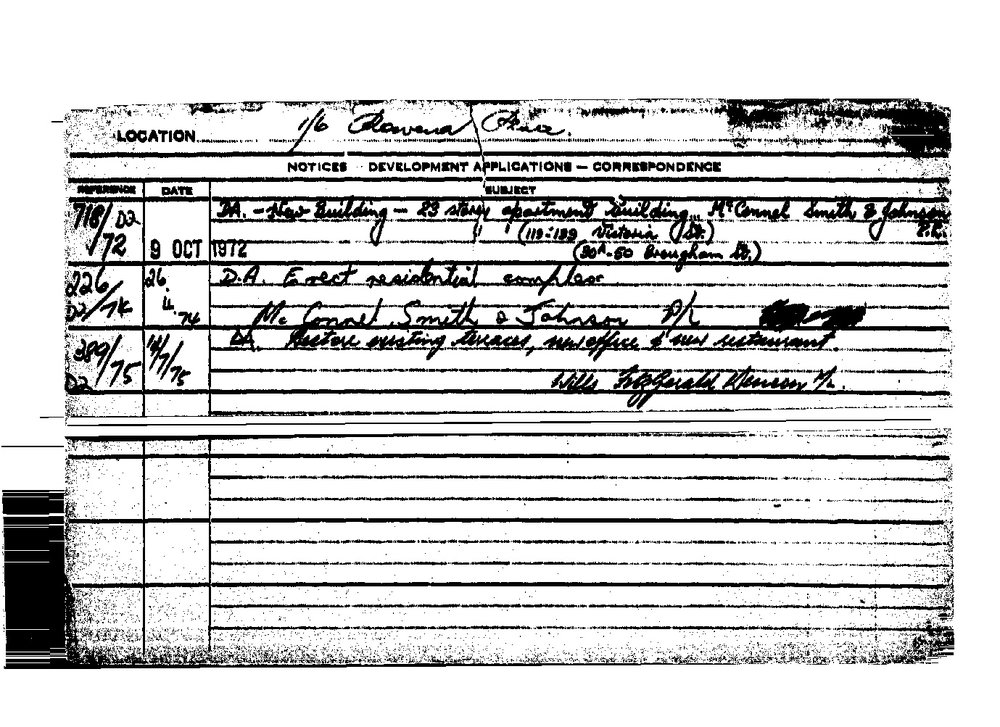 LOCATION 1/6 Rowena Place.
NOTICES DEVELOPMENT APPLICATIONS — CORRESPONDENCE
REFERENCE DATE SUBJECT
718/72 D2 9 OCT 1972 DA. - New Building - 23 storey apartment building. McConnel Smith & Johnson P.L.
(119-139 Victoria St.)
(30A-50 Brougham St.)
226/74 D2 26. 4. 74 D.A. Erect residential complex
Mc Connel Smith & Johnson P/L
389/75 D2 14/7/75 DA. Restore existing terraces, new office & new restaurant.
Wills Fitzgerald Denson P/L.